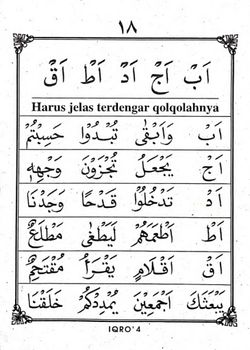 ١٨
اَبْ اَجْ اَدْ اَطْ اَقْ
Harus jelas terdengar qolqolahnya
اَبْ وَاَبْقٰى تُبْدُوْا حَسِبْتُمْ
اَجْ يَجْعَلُ تُجْزَوْنَ وَجْهِهٖ
اَدْ تَدْخُلُوْا قَدْحًا وَجَدْنَا
اَطْ اَطْعَمَهُمْ لَيَطْغٰى مَطْلَعٌ
اَقْ اَقْلَامٌ يَقْرَاُ مُقْتَحِمٌ
يَبْعَثُكَ اَجْمَعِيْنَ يُمْدِدْكُمْ خَلَقْنَا
IQRO'4